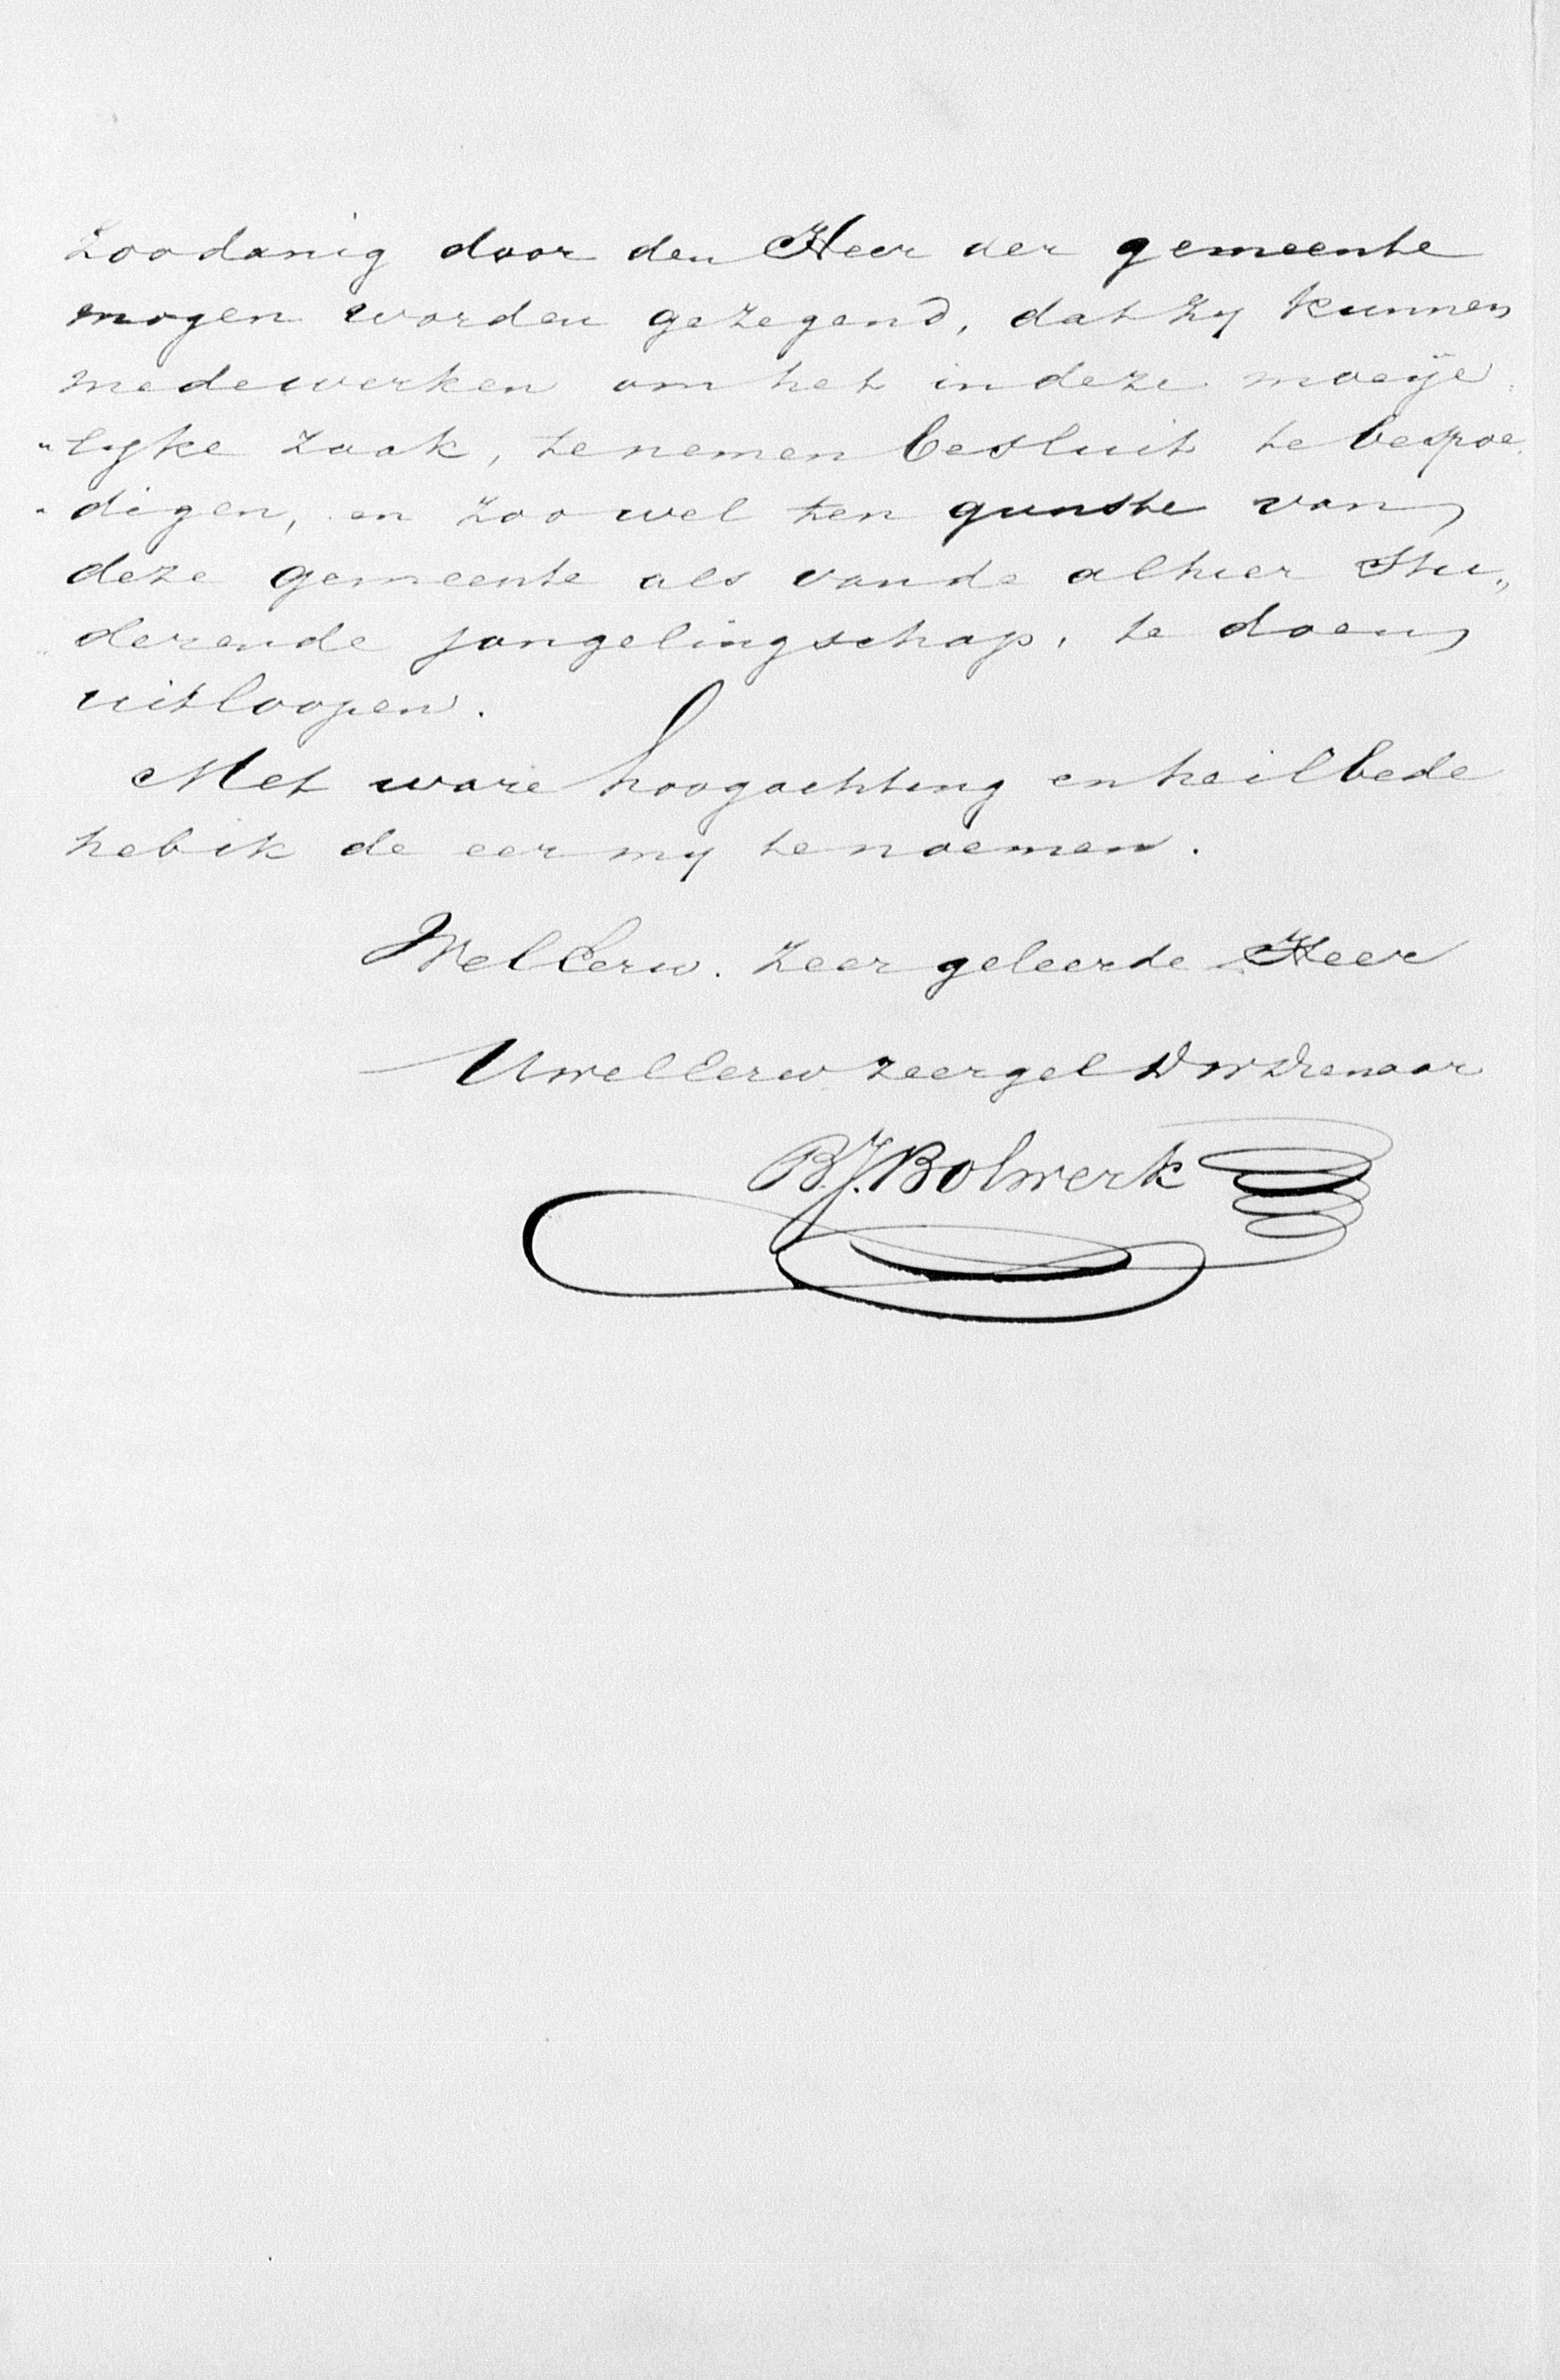 zoodanig door den Heer der gemeente
mogen worden gezegend, dat zy kunnen
medewerken om het in deze moeÿe„
„lyke zaak, te nemen besluit te bespoe„
„digen, en zoo wel ten gunste van
deze gemeente als van de alhier Stu„
„derende jongelingschap, te doen
uitloopen.
Met ware hoogachting en heilbede
heb ik de eer my te noemen.
Wel Eerw. Zeer geleerde Heer
Uwel Eerw zeer gel DW Dienaar
B.J. Bolwerk